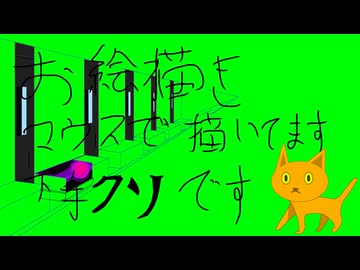 お絵描き
マウスで描いてます
下手クソです